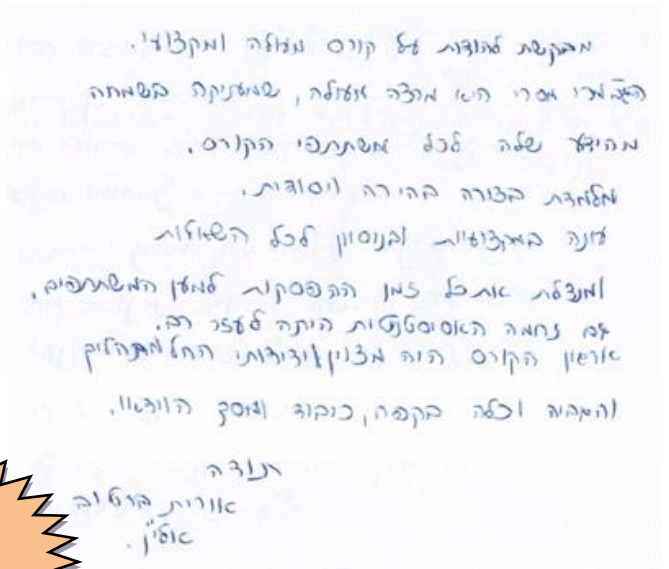 מבקשת להודות על קורס מעולה ומקצועי.
הגב' מסרי היא מרצה מעולה, שמעניקה בשמחה
מהידע שלה לכל משתתפי הקורס.
מלמדת בצורה בהירה ויסודית.
עונה במקצועיות ובנסיון לכל השאלות
ומנצלת את כל זמן ההפסקות למען המשתתפים.
גם נחמה האסיסטנטית היתה לעזר רב.
ארגון הקורס היה מצוין וידידותי החל מתהליך
והגביה וכלה בקפה, כיבוד ומסך הוידאו.
תודה
אורית ברטוב